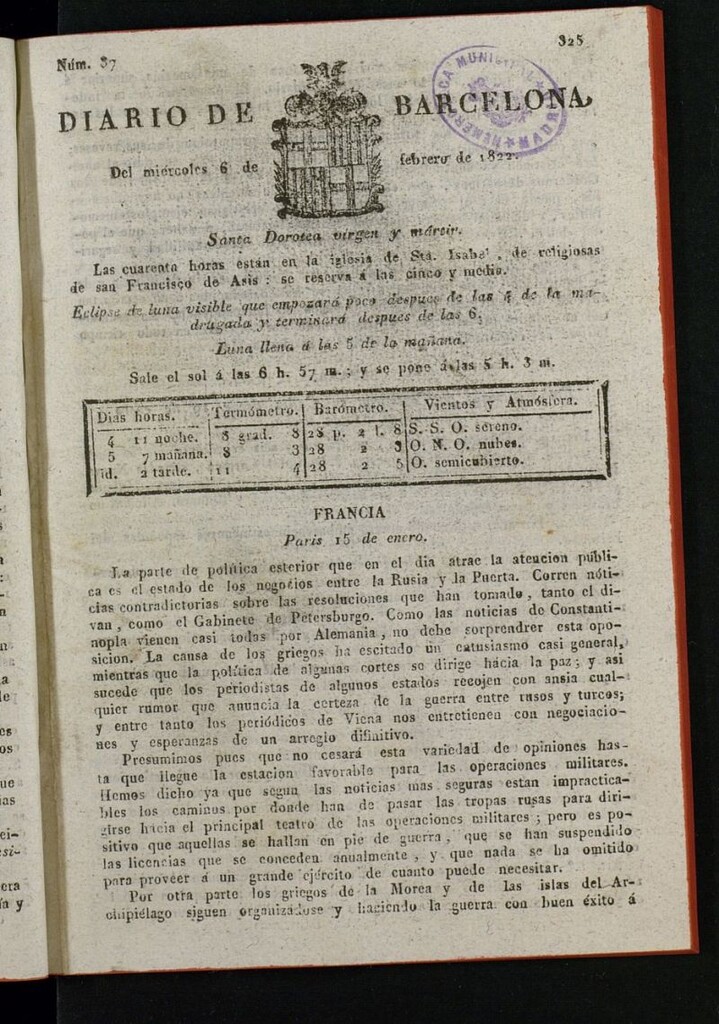 Núm. 37
325
DIARIO DE BARCELONA,
Del miércoles 6 de febrero de 1822.
HEMEROTECA MUNICIPAL MADRID
Santa Dorotea virgen y mártir.
Las cuarenta horas están en la iglesia de Sta. Isabel, de religiosas
de san Francisco de Asis: se reserva á las cinco y media.
Eclipse de luna visible que empezará poco despues de las 4 de la ma-
drugada y terminará despues de las 6.
Luna llena á las 5 de la mañana.
Sale el sol á las 6 h. 57 m.; y se pone á las 5 h. 3 m.
Dias horas. Termómetro. Barómetro. Vientos y Atmósfera.
4 11 noche. 8 grad. 8 28 p. 2 l. 8 S. S. O. sereno.
5 7 mañana. 8 3 28 2 8 O. N. O. nubes.
id. 2 tarde. 11 4 28 2 5 O. semicubierto.
FRANCIA
Paris 15 de enero.
La parte de política esterior que en el dia atrae la atencion públi-
ca es el estado de los negotios entre la Rusia y la Puerta. Corren nóti-
cias contradictorias sobre las resoluciones que han tomado, tanto el di-
van, como el Gabinete de Petersburgo. Como las noticias de Constanti-
nopla vienen casi todas por Alemania, no debe sorprendrer esta opo-
sicion. La causa de los griegos ha escitado un entusiasmo casi general,
mientras que la política de algunas cortes se dirige hácia la paz; y asi
sucede que los periodistas de algunos estados recojen con ansia cual-
quier rumor que anuncia la certeza de la guerra entre rusos y turcos;
y entre tanto los periódicos de Viena nos entretienen con negociacio-
nes y esperanzas de un arreglo difinitivo.
Presumimos pues que no cesará esta variedad de opiniones has-
ta que llegue la estacion favorable para las operaciones militares.
Hemos dicho ya que segun las noticias mas seguras estan impractica-
bles los caminos por donde han de pasar las tropas rusas para diri-
girse hácia el principal teatro de las operaciones militares; pero es po-
sitivo que aquellas se hallan en pie de guerra, que se han suspendido
las licencias que se conceden anualmente, y que nada se ha omitido
para proveer á un grande ejército de cuanto puede necesitar.
Por otra parte los griegos de la Morea y de las islas del Ar-
chipiélago siguen organizádose y haciendo la guerra con buen éxito á